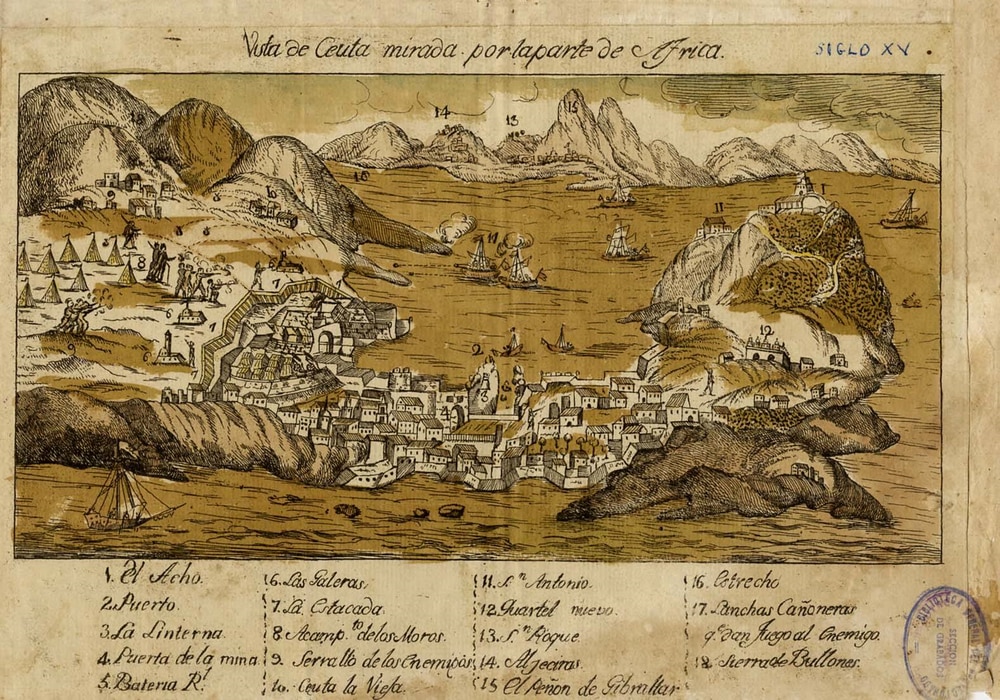 Vista de Ceuta mirada por la parte de Africa.
SIGLO XV
14
13
15
18
16
9
8
10
I
11
17
8
7
6
7
6
9
2
12
3
5
4
1. El Acho.
2. Puerto.
3. La Linterna.
4. Puerta de la mina.
5. Bateria R.l
6. Las Galeras.
7. La Estacada.
8. Acamp.to de los Moros.
9. Serrallo de los Enemigos.
10. Ceuta la Vieja.
11. S.n Antonio.
12. Quartel nuevo.
13. S.n Roque.
14. Algeciras.
15. El Peñon de Gibraltar
16. Estrecho
17. Lanchas Cañoneras
q.e dan fuego al Enemigo.
18. Sierra de Bullones.
BIBLIOTECA
SECCION
DE GRABADOS